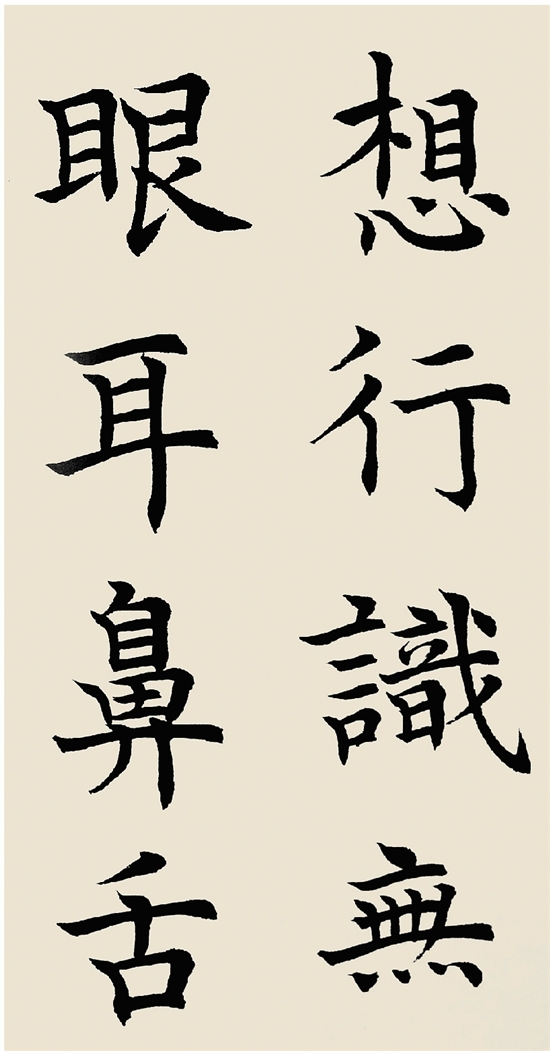 想行識無
眼耳鼻舌